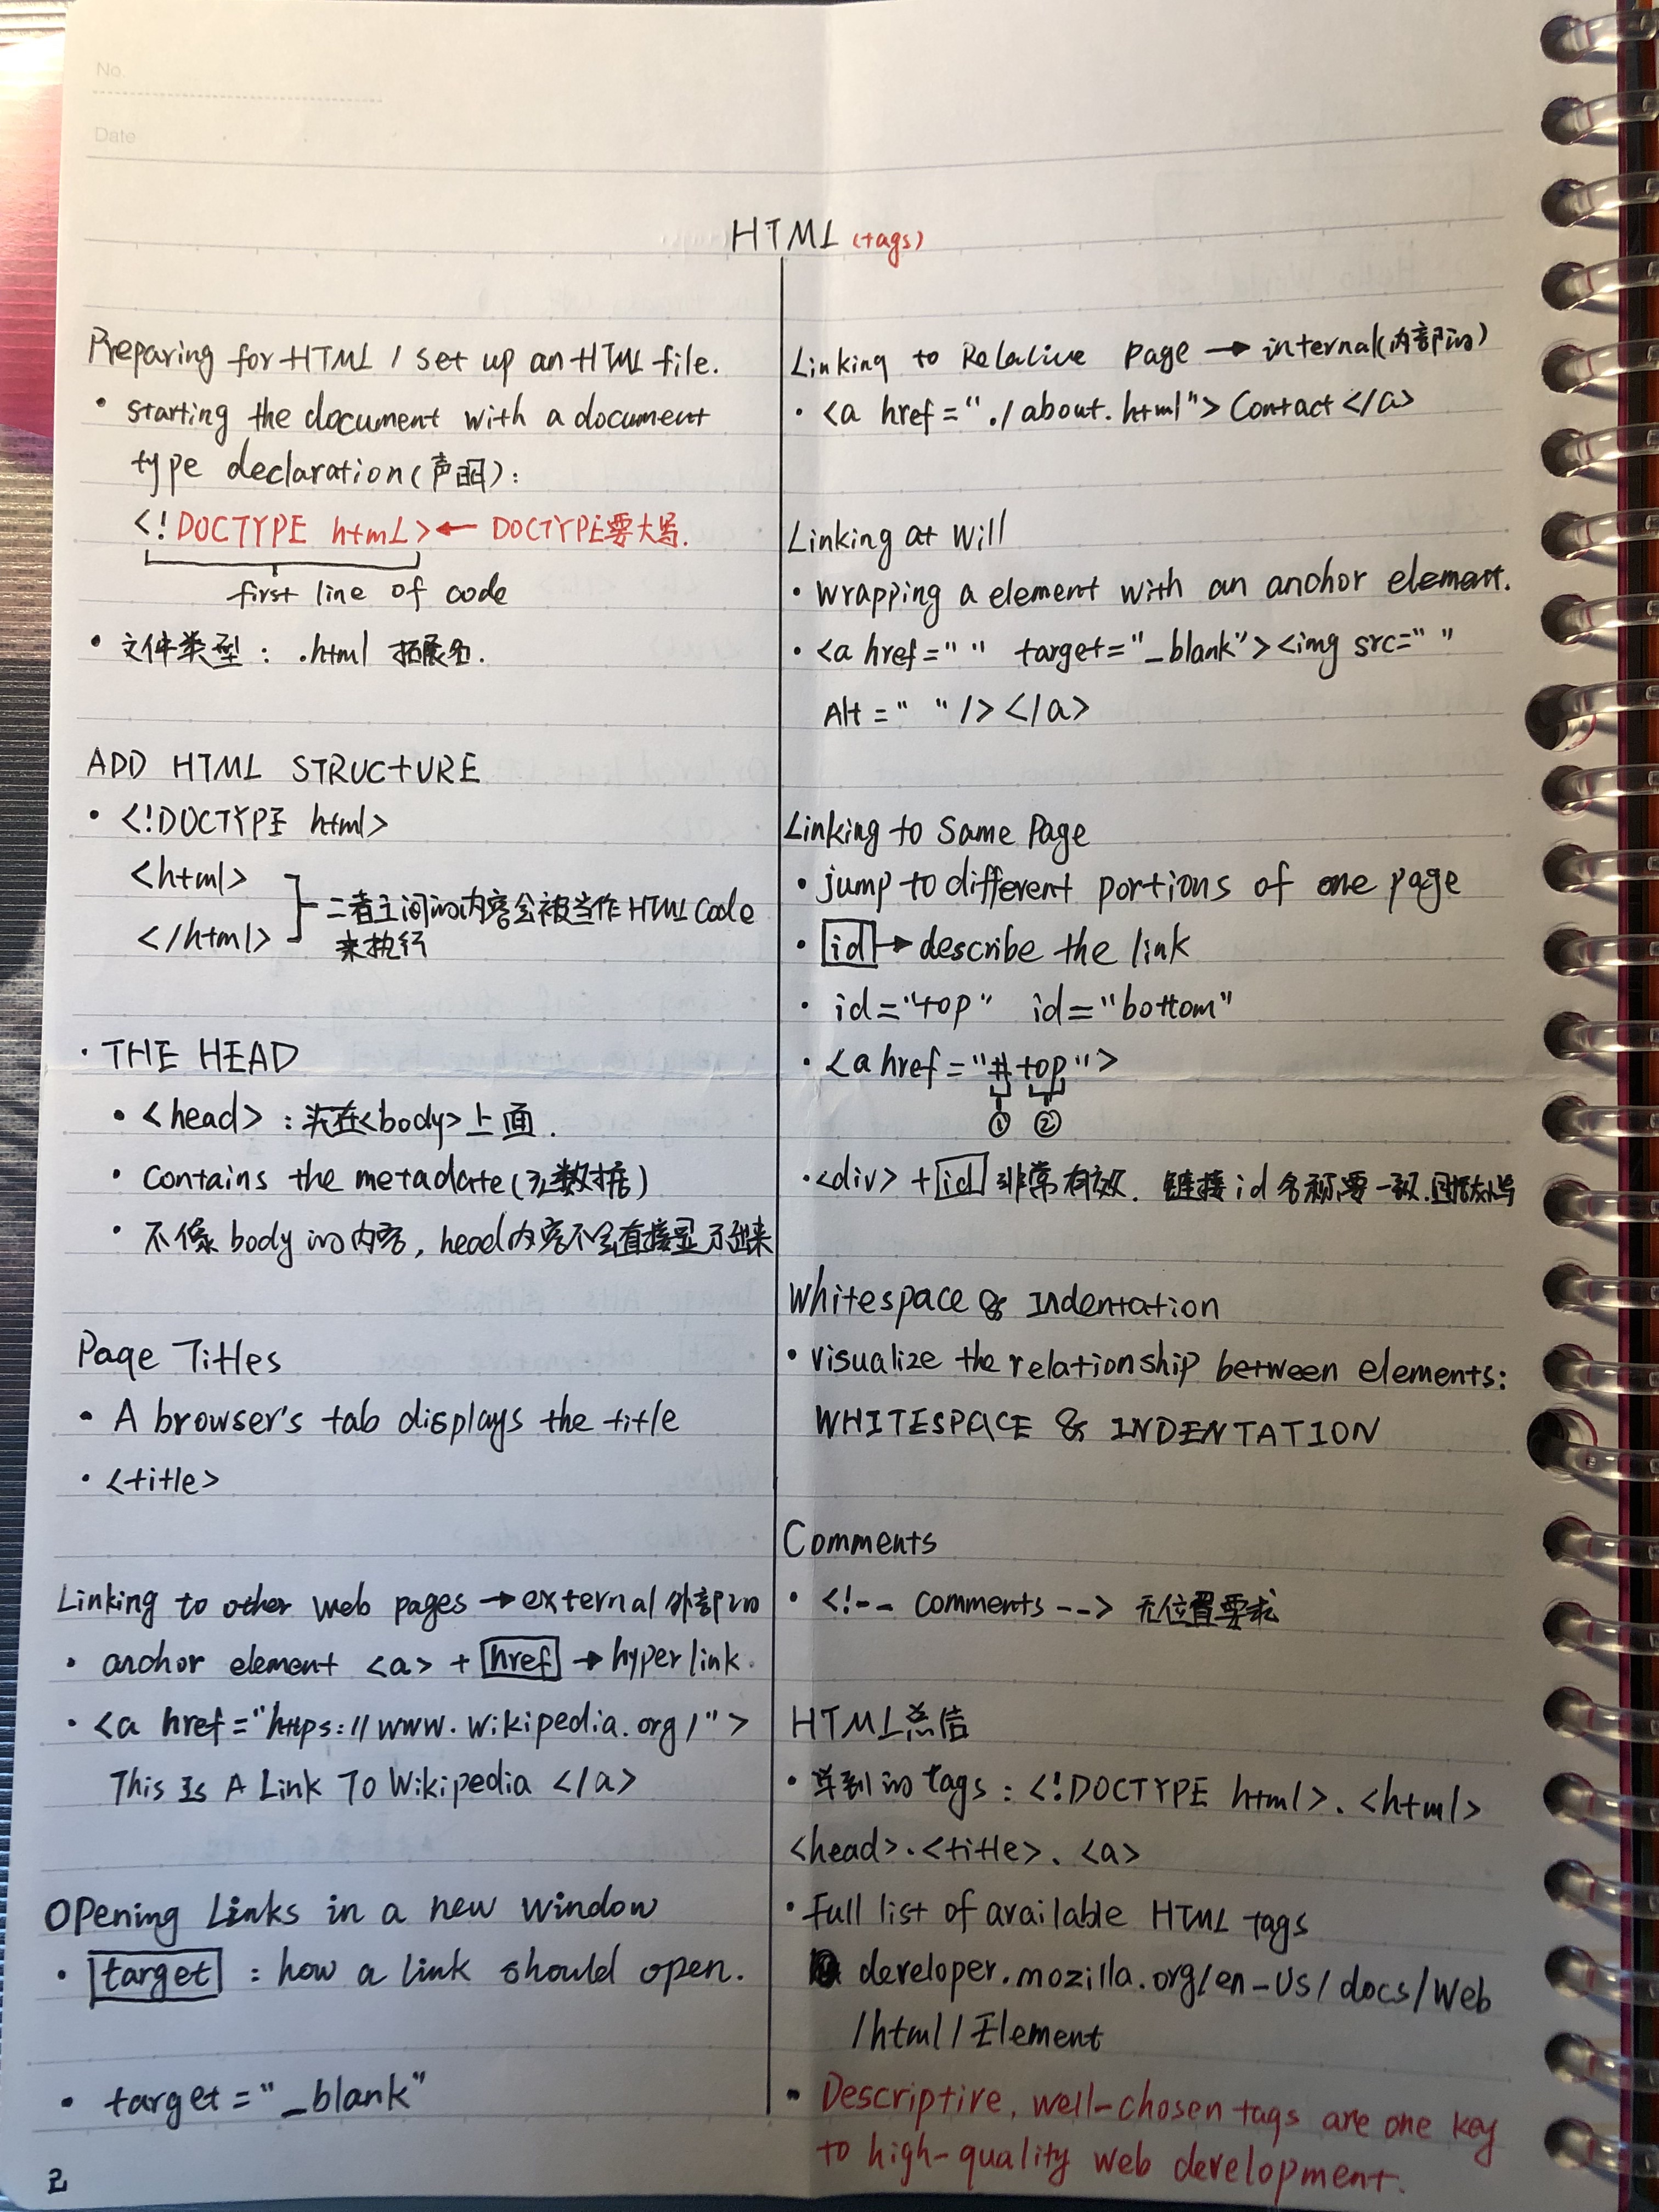 No.
Date
HTML (tags)
Preparing for HTML / set up an HTML file.
• starting the document with a document
type declaration(声明):
<!DOCTYPE html> ← DOCTYPE要大写.
first line of code
• 文件类型: .html 拓展名.
ADD HTML STRUCTURE
• <!DOCTYPE html>
<html>
</html>
二者之间的内容会被当作HTML Code
来执行
• THE HEAD
• <head> : 夹在<body>上面.
• contains the metadate(元数据)
• 不像body的内容, head内容不会直接显示出来
Page Titles
• A browser's tab displays the title
• <title>
Linking to other web pages → external 外部的
• anchor element <a> + href → hyperlink.
• <a href="https://www.wikipedia.org/">
This Is A Link To Wikipedia </a>
Opening Links in a new window
• target : how a link should open.
• target="_blank"
2
Linking to Relative page → internal(内部的)
• <a href="./about.html">Contact</a>
Linking at Will
• wrapping a element with an anchor element.
• <a href=" " target="_blank"><img src=" "
Alt=" "/></a>
Linking to Same Page
• jump to different portions of one page
• id → describe the link
• id="top" id="bottom"
• <a href="#top">
① ②
• <div> + id 非常有效. 链接id名称要一致.包括大小写
Whitespace & Indentation
• visualize the relationship between elements:
WHITESPACE & INDENTATION
Comments
• <!-- comments --> 无位置要求
HTML总结
• 学到的tags: <!DOCTYPE html>、<html>
<head>.<title>、<a>
• Full list of available HTML tags
developer.mozilla.org/en-US/docs/Web
/html/Element
• Descriptive, well-chosen tags are one key
to high-quality web development.